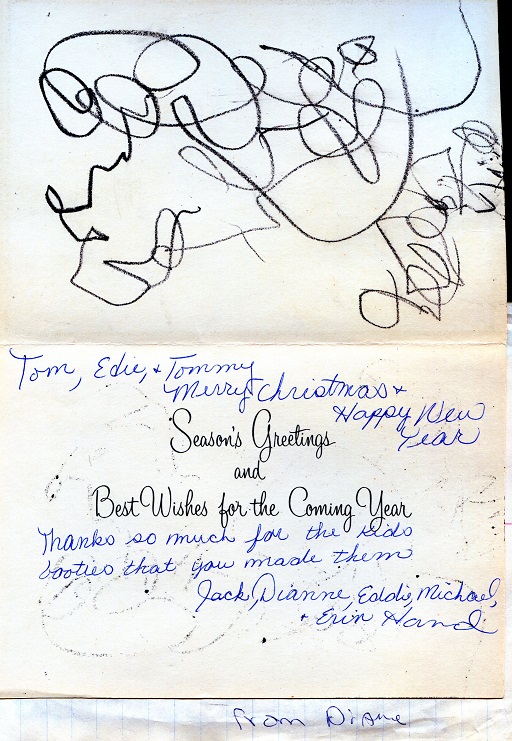 Tom, Edie, + Tommy
Merry Christmas +
Happy New
Year
Season's Greetings
and
Best Wishes for the Coming Year
Thanks so much for the kids
booties that you made them
Jack, Dianne, Eddie, Michael,
+ Erin Hand
from Diane